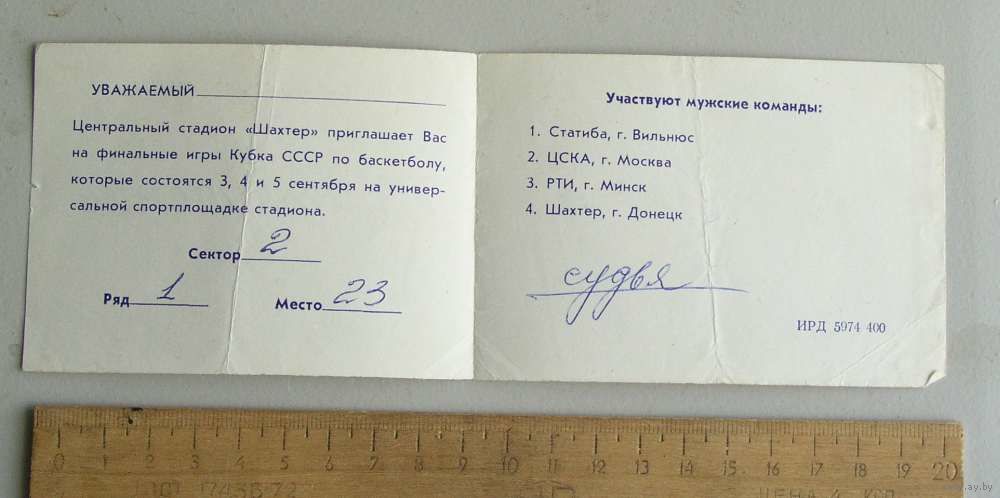 УВАЖАЕМЫЙ
Центральный стадион «Шахтер» приглашает Вас
на финальные игры Кубка СССР по баскетболу,
которые состоятся 3, 4 и 5 сентября на универ-
сальной спортплощадке стадиона.
Сектор 2
Ряд 1 Место 23
Участвуют мужские команды:
1. Статиба, г. Вильнюс
2. ЦСКА, г. Москва
3. РТИ, г. Минск
4. Шахтер, г. Донецк
судья
ИРД 5974 400
0 1 2 3 4 5 6 7 8 9 10 11 12 13 14 15 16 17 18 19 20
ЦЕНА 4 КОП
ay.by